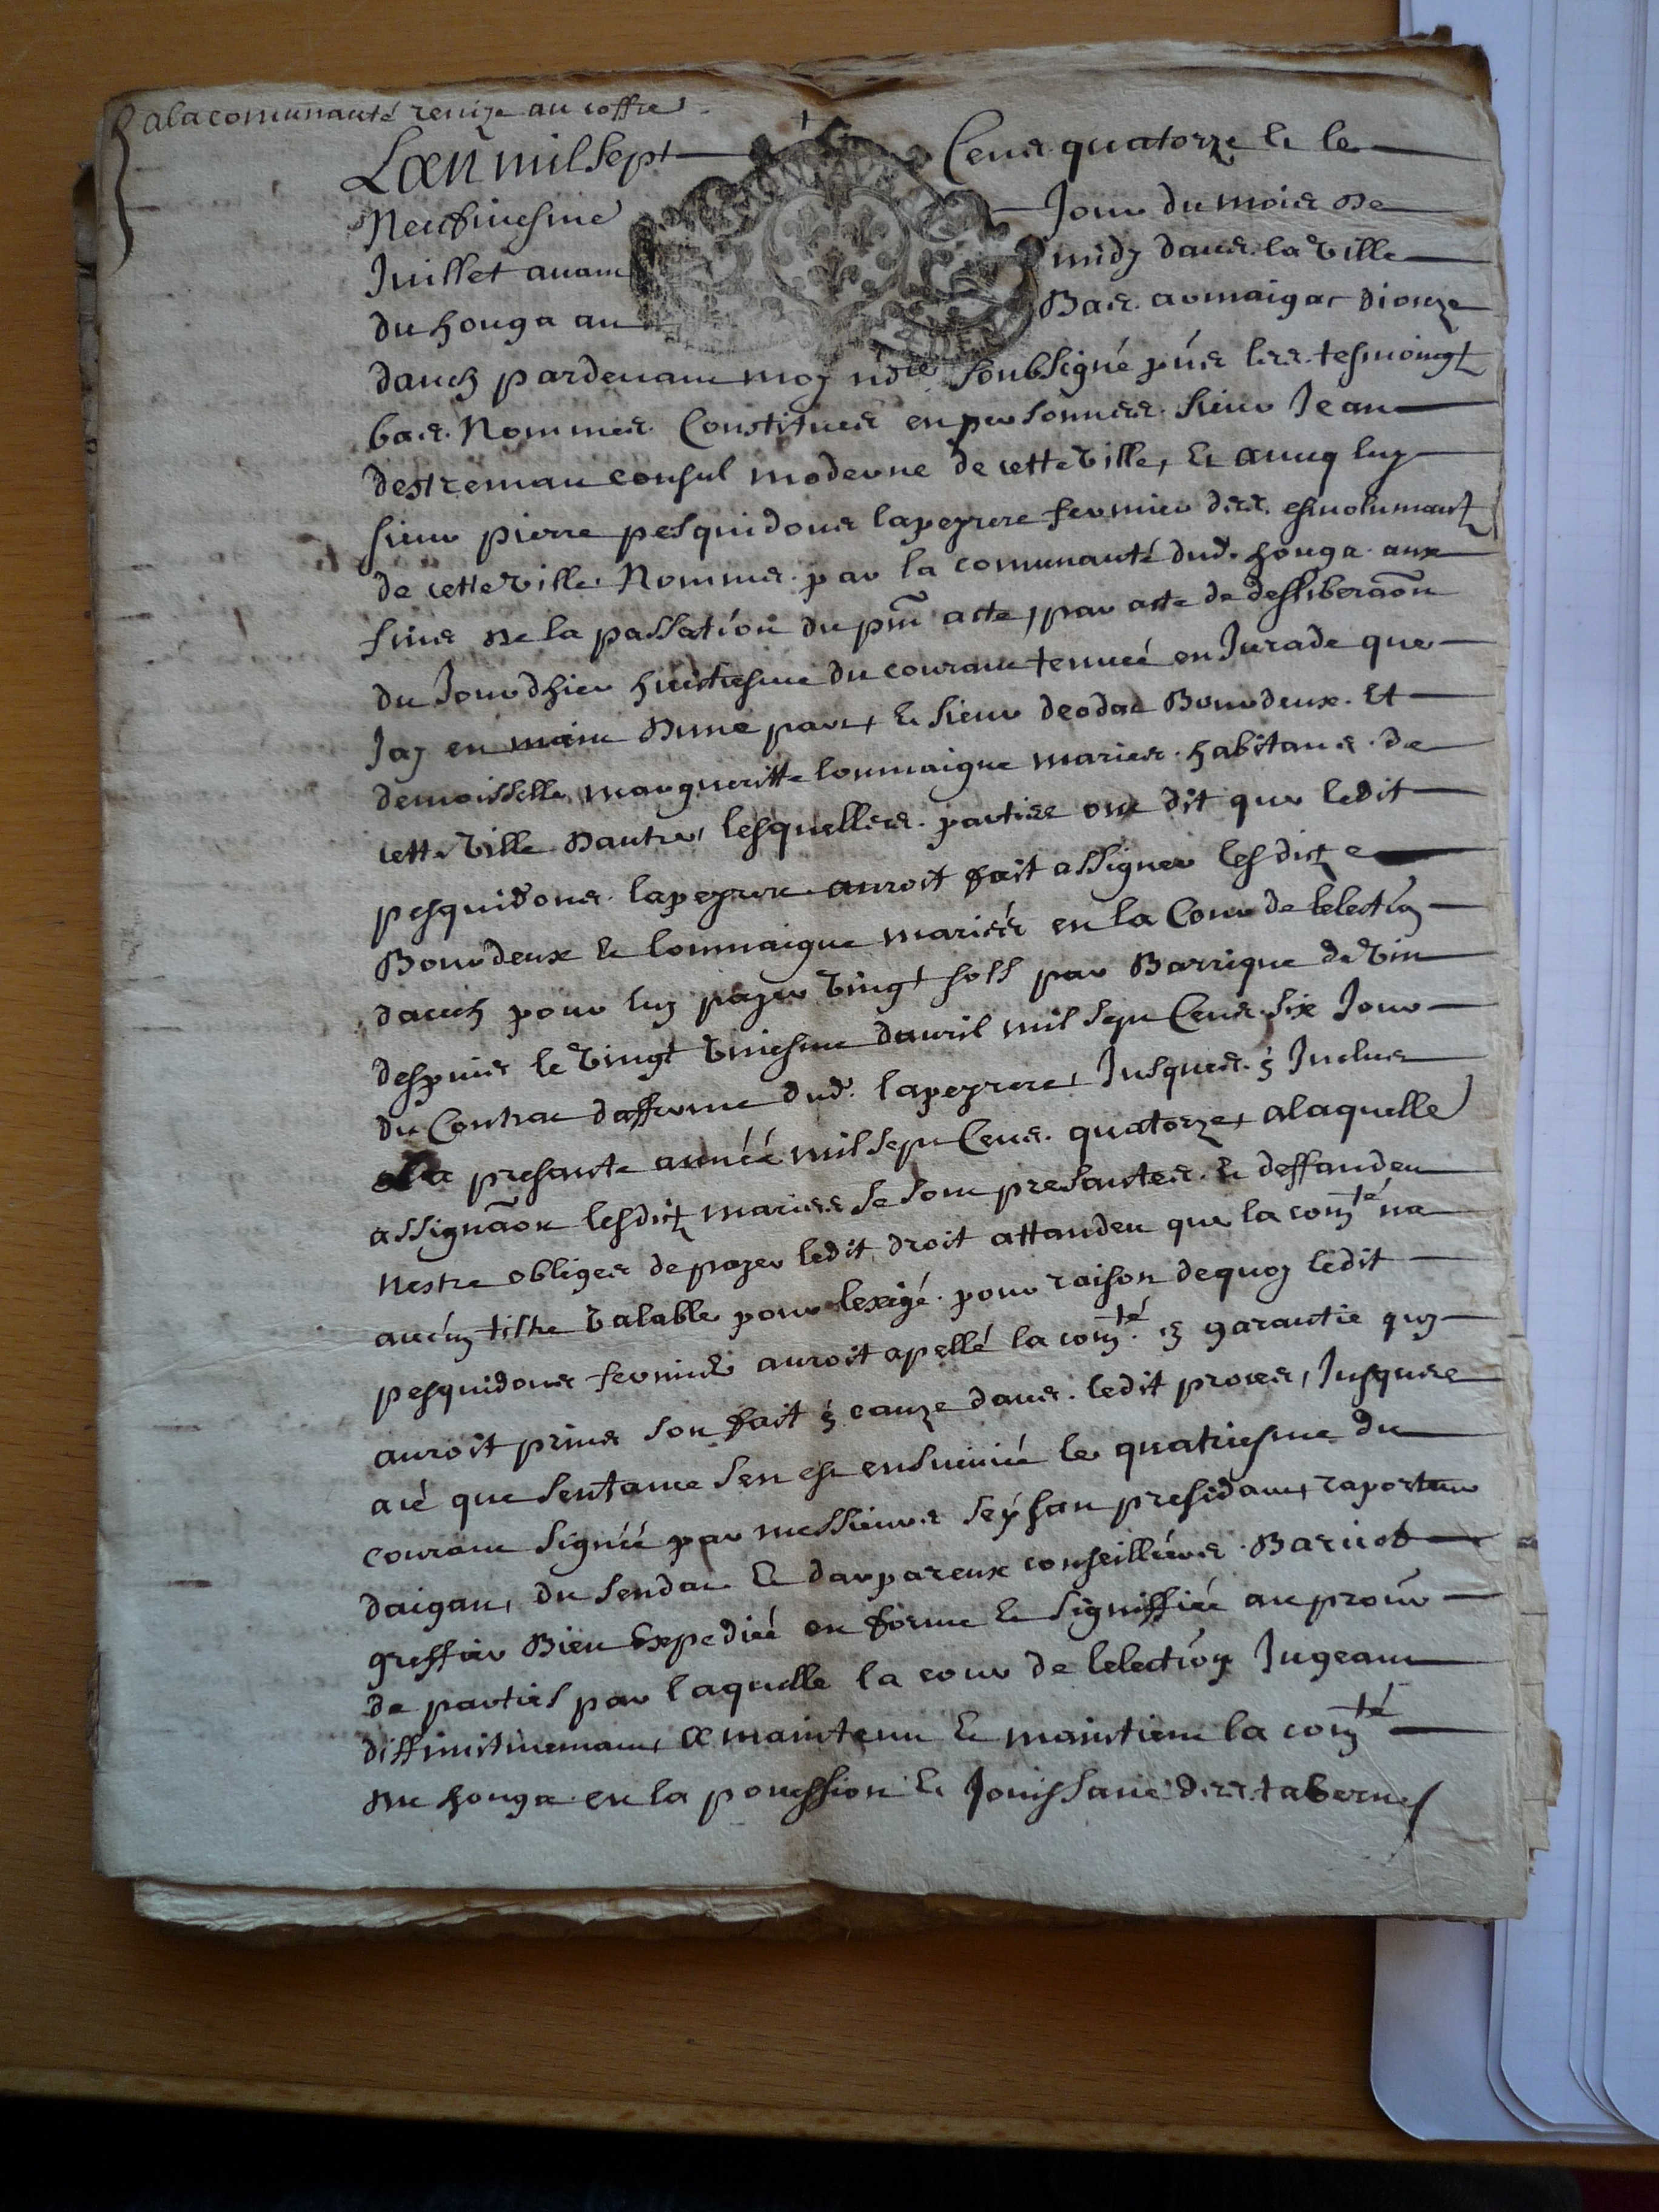 a la comunauté remize au coffre
Lan mil sept Cens quatorze & le
Neufviesme Jour du mois de
Juillet avant midy dans la ville
du houga au Bas armaignac dioceze
dauch pardevant moy nore soubsigné pñs les tesmoingt
bas Nommes Constitues en personnes sieur Jean
destremau consul moderne de cette ville, & avecq luy
sieur pierre pesquidous lapeyrere fermier des esmolumant
de cette ville Nommes par la comunauté dud. houga aux
fins de la passation du pñt acte, par acte de desliberaõn
du Jour dhier huictiesme du courant tenuee en Jurade que
Jay en main dune part, & sieur deodat Bourdeux Et
demoisselle margueritte loumaigne maries habitans de
cette ville dautre, lesquelles parties ont dit que ledit
pesquidous lapeyrere auroit fait assigner lesdictz
Bourdeux & loumaigne mariés en la Cour de lelection
dauch pour luy payer vingt solz par Barrique de vin
despuis le vingt uniesme davril mil sept Cens six Jour
du Contrac dafferme dud. lapeyrere, Jusques & Inclus
la presante année mil sept Cens quatorze, a laquelle
assignaõn lesdictz maries se sont presantes & deffandeu
Nestre obliges de payer ledit droit attandeu que la comté na
aucun tiltre valable pour lexigé pour raison dequoy ledit
pesquidous fermier auroit apellé la comté en garantie quy
auroit prins son fait & cauze dans ledit proces, Jusques
a cé que sentance sen est ensuiviée le quatriesme du
courant signée par messieurs seyhan presidant, raporteur
daignan, du sendat & darpareux conseillers Baricot
greffier Bien Expediée en forme & signiffiée au procur
de parties par laquelle la cour de lelection Jugeant
diffinitivemant, a maintenu & maintient la comté
du houga en la possession & Jouissance des tabernes